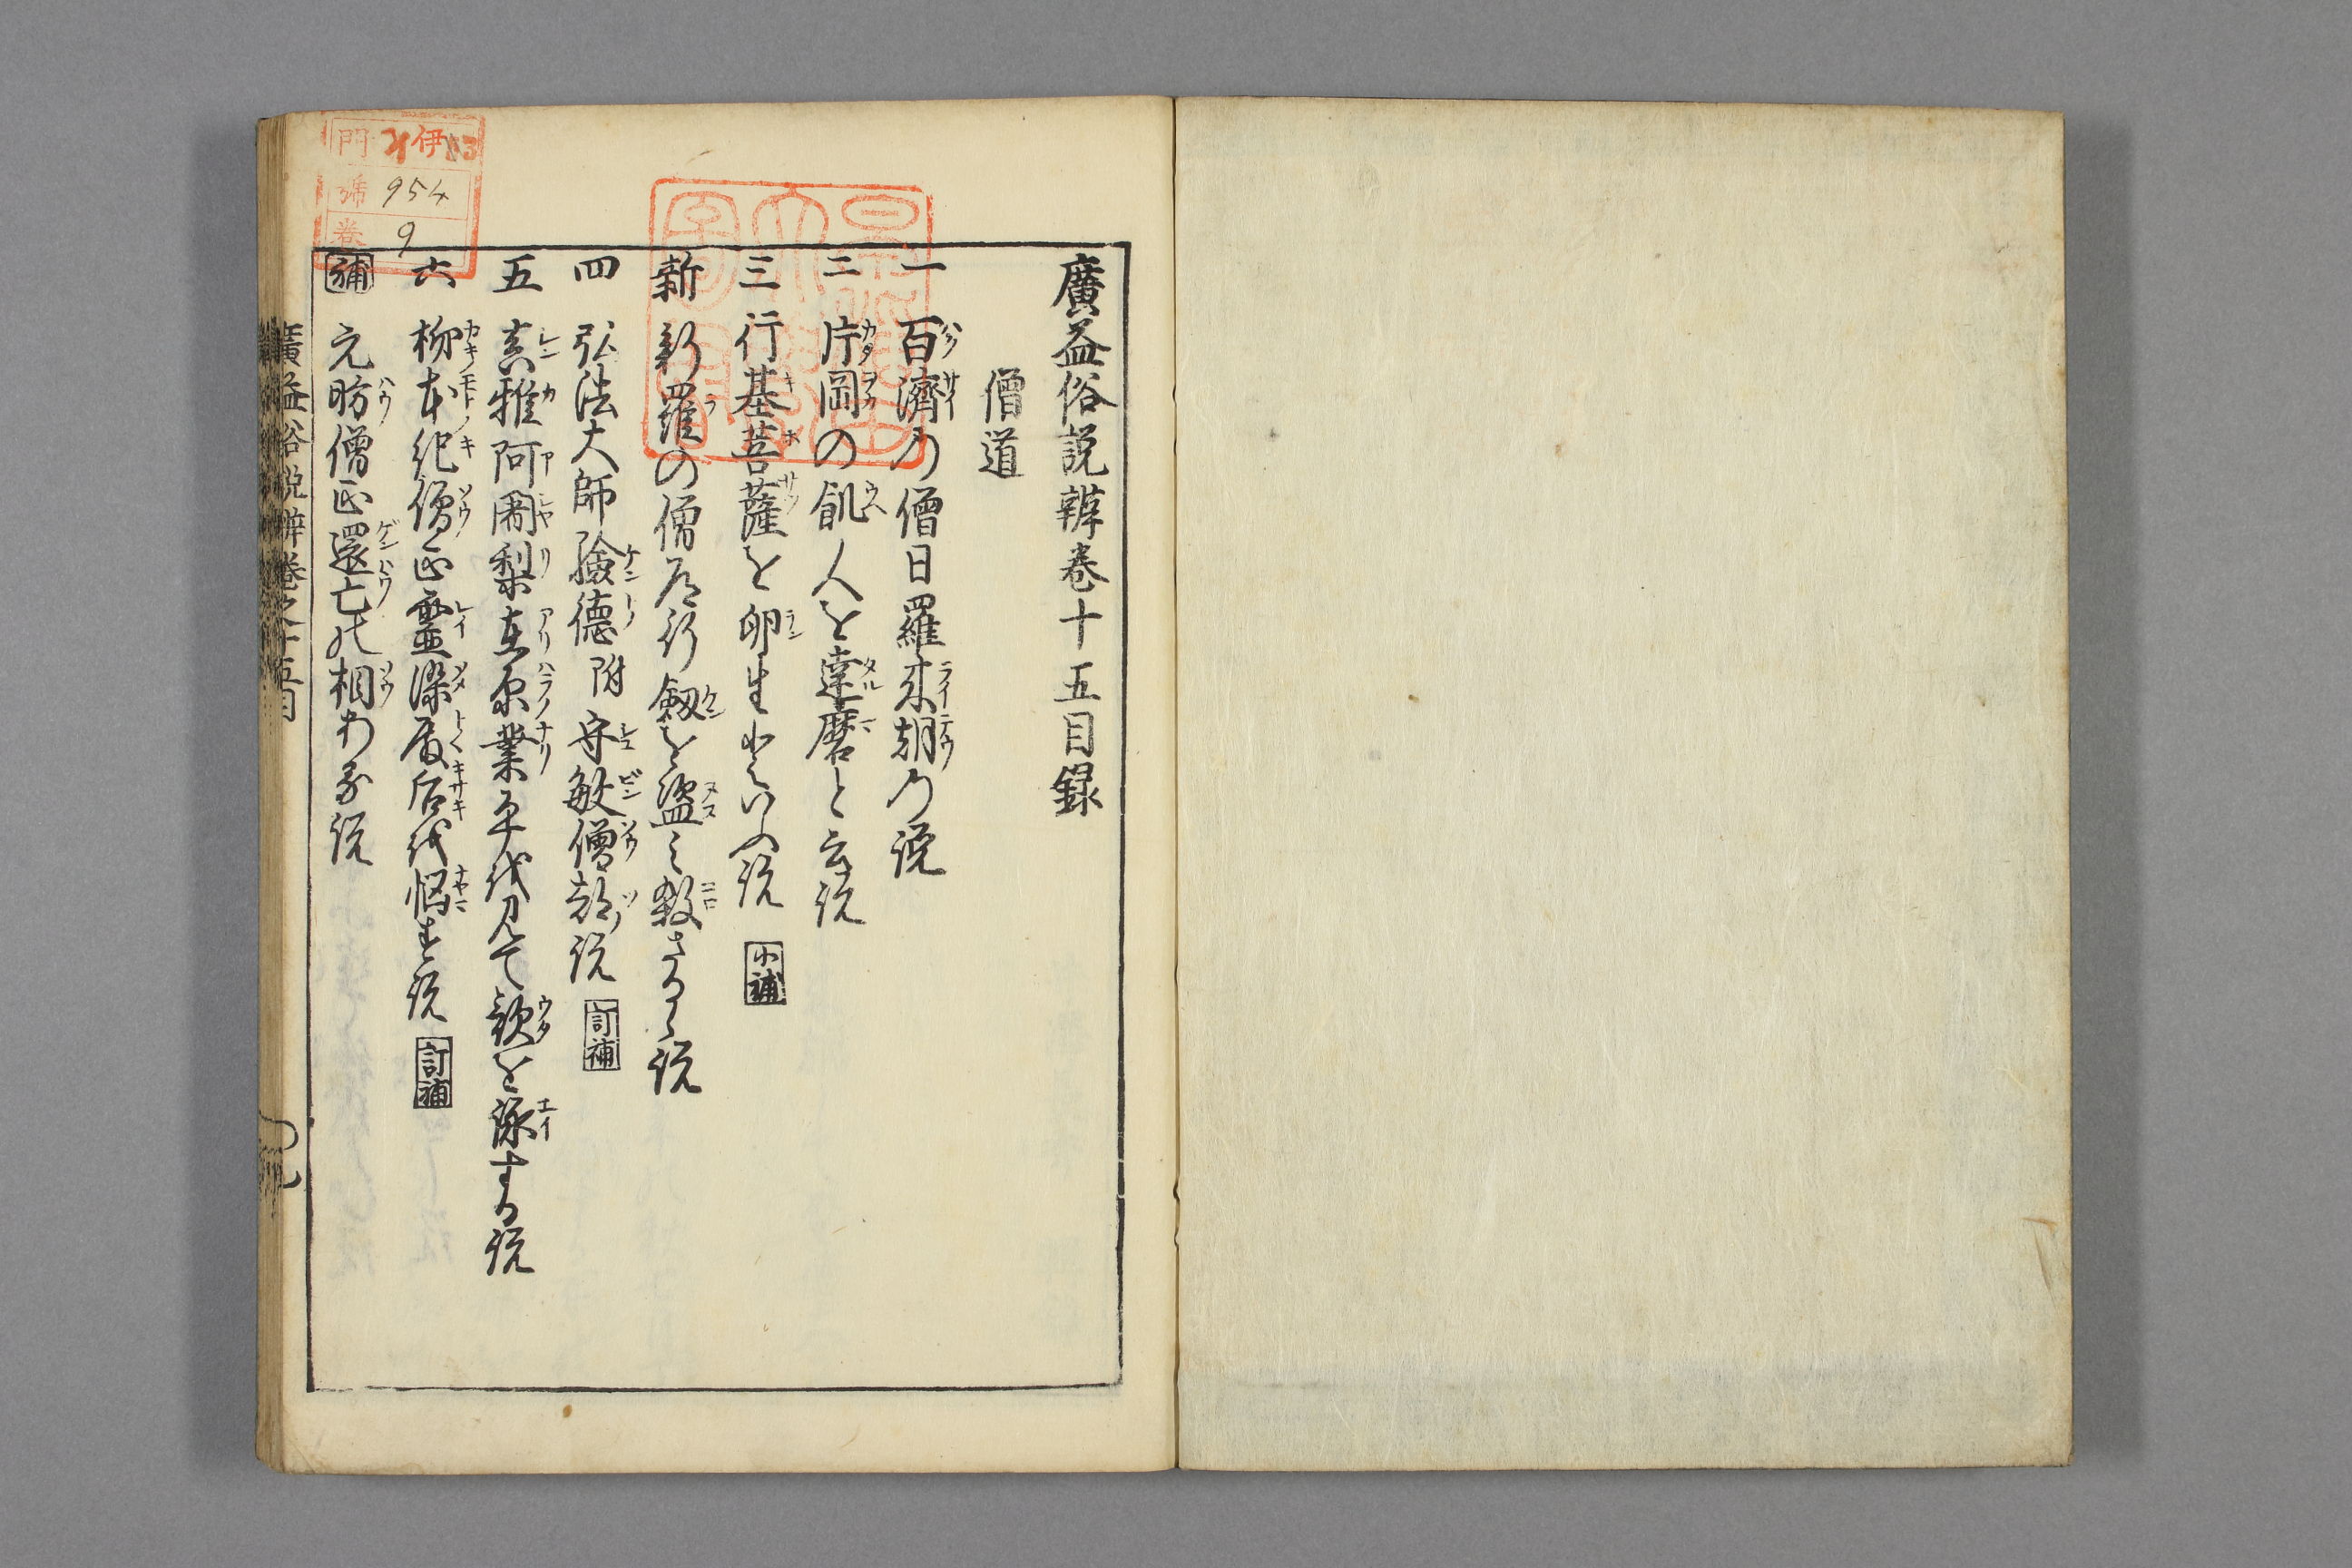 廣益俗説辨巻十五目録
僧道
一 百濟の僧日羅来朝の説
二 片岡の飢人を達磨と云説
三 行基菩薩を卵生といふ説 小補
新 新羅の僧道行劔を盗み殺さるゝ説
四 弘法大師險德附守敏僧都説 訂補
五 真雅阿闍梨在原業平を見て歌を詠する説
六 柿本紀僧正霊染殿后を悩す説 訂補
補 元昉僧正還亡の相ある説
廣益俗説辨巻之十五目
伊
門
號 954
巻 9